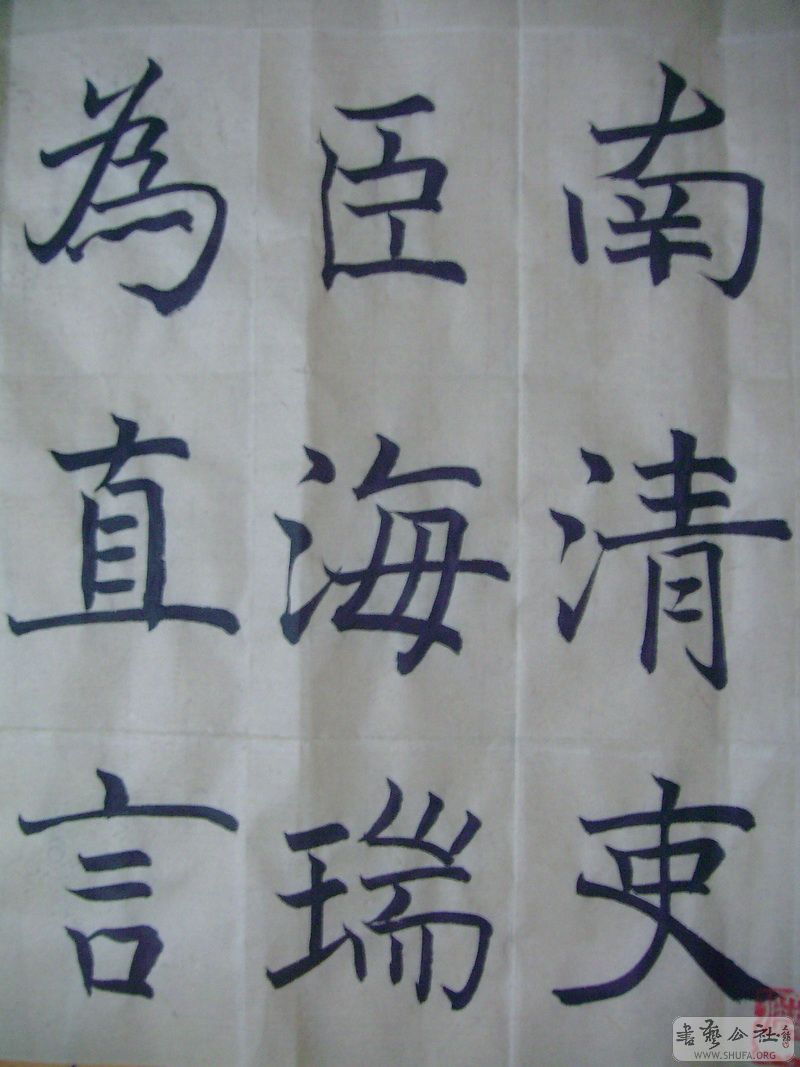 南清吏
臣海瑞
為直言
書藝公社
WWW.SHUFA.ORG